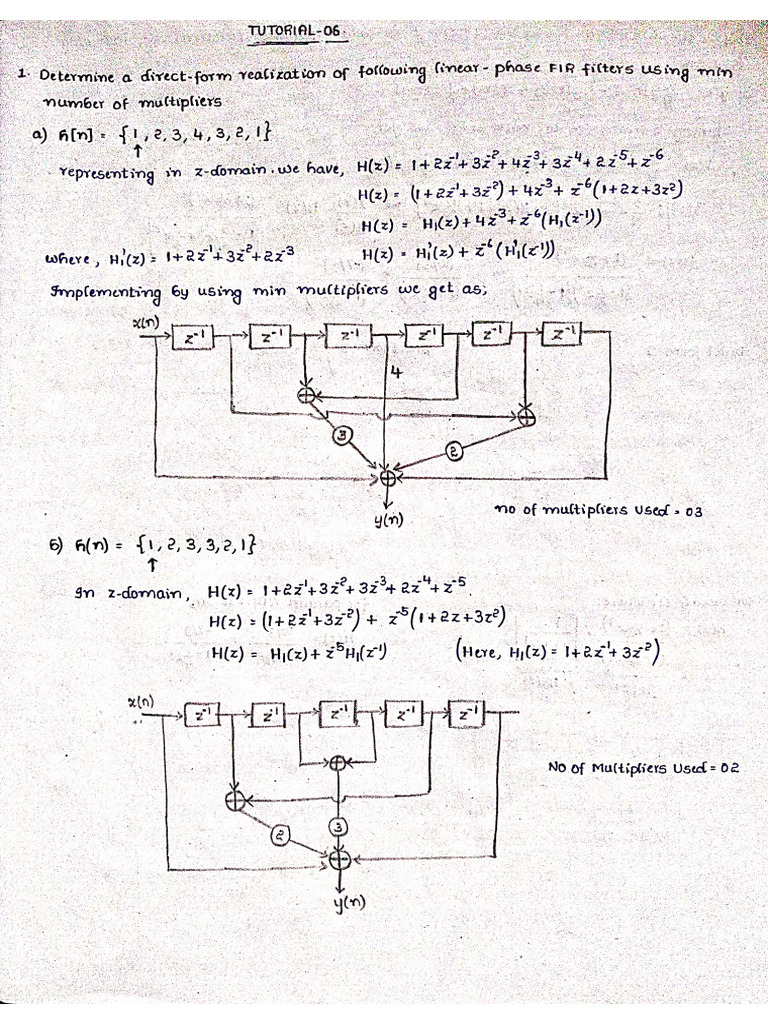 TUTORIAL-06
1. Determine a direct-form realization of following linear-phase FIR filters using min
number of multipliers
a) h[n] = {1, 2, 3, 4, 3, 2, 1}
↑
representing in z-domain. we have, H(z) = 1+2z⁻¹+3z⁻²+4z⁻³+3z⁻⁴+2z⁻⁵+z⁻⁶
H(z) = (1+2z⁻¹+3z⁻²)+4z⁻³+z⁻⁶(1+2z+3z²)
H(z) = H₁(z)+4z⁻³+z⁻⁶(H₁(z⁻¹))
where, H₁'(z) = 1+2z⁻¹+3z⁻²+2z⁻³ H(z) = H₁'(z)+z⁻⁶(H₁'(z⁻¹))
Implementing by using min multipliers we get as;
x(n)
z⁻¹ z⁻¹ z⁻¹ z⁻¹ z⁻¹ z⁻¹
4
3
2
y(n)
no of multipliers used = 03
b) h(n) = {1, 2, 3, 3, 2, 1}
↑
In z-domain, H(z) = 1+2z⁻¹+3z⁻²+3z⁻³+2z⁻⁴+z⁻⁵.
H(z) = (1+2z⁻¹+3z⁻²) + z⁻⁵(1+2z+3z²)
H(z) = H₁(z)+z⁻⁵H₁(z⁻¹) (Here, H₁(z) = 1+2z⁻¹+3z⁻²)
x(n)
z⁻¹ z⁻¹ z⁻¹ z⁻¹ z⁻¹
No of Multipliers Used = 02
2 3
y(n)